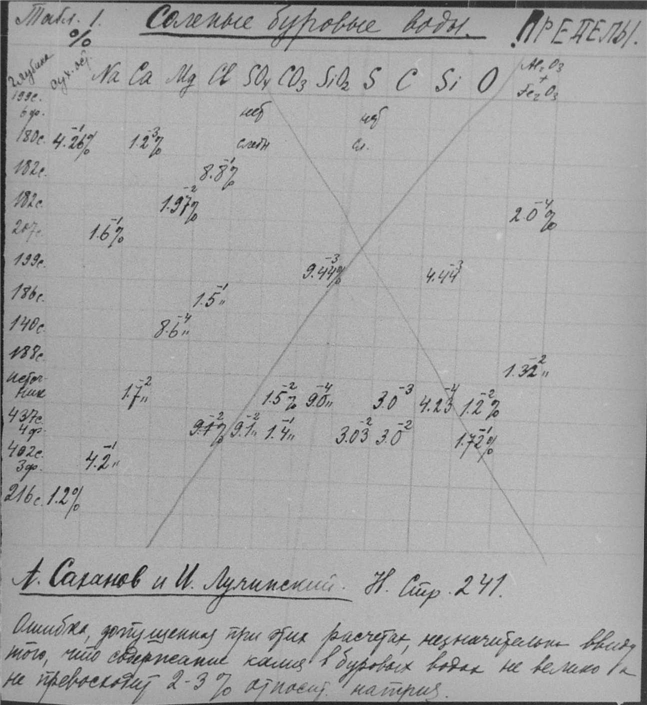 Табл. 1. Соленые буровые воды. ПРЕДЕЛЫ.
%
Глубина сух. ост. Na Ca Mg Cl SO₄ CO₃ SiO₂ S C Si O Al₂O₃ + Fe₂O₃
199с. 6ф. нет нет
180с. 4.26⁻¹% 1.2⁻³% следы сл.
182с. 8.8⁻¹%
182с. 1.97⁻²% 2.0⁻⁴%
207с. 1.6⁻¹%
199с. 9.44⁻³% 4.44⁻³
186с. 1.5⁻¹"
140с. 8.6⁻⁴"
188с. 1.32⁻²"
источник 1.7⁻²" 1.5⁻²% 9.0⁻⁴" 3.0⁻³ 4.23⁻⁴ 1.2⁻²%
437с. 4ф. 9.1⁻²% 9.1⁻²" 1.4⁻¹" 3.03⁻² 3.0⁻² 1.72⁻¹%
402с. 3ф. 4.2⁻¹"
216с. 1.2%
А. Саханов и И. Лучинский. Н. Стр. 241.
Ошибка, допущенная при этих расчетах, незначительна ввиду
того, что содержание калия в буровых водах не велико и
не превосходит 2-3% относит. натрия.